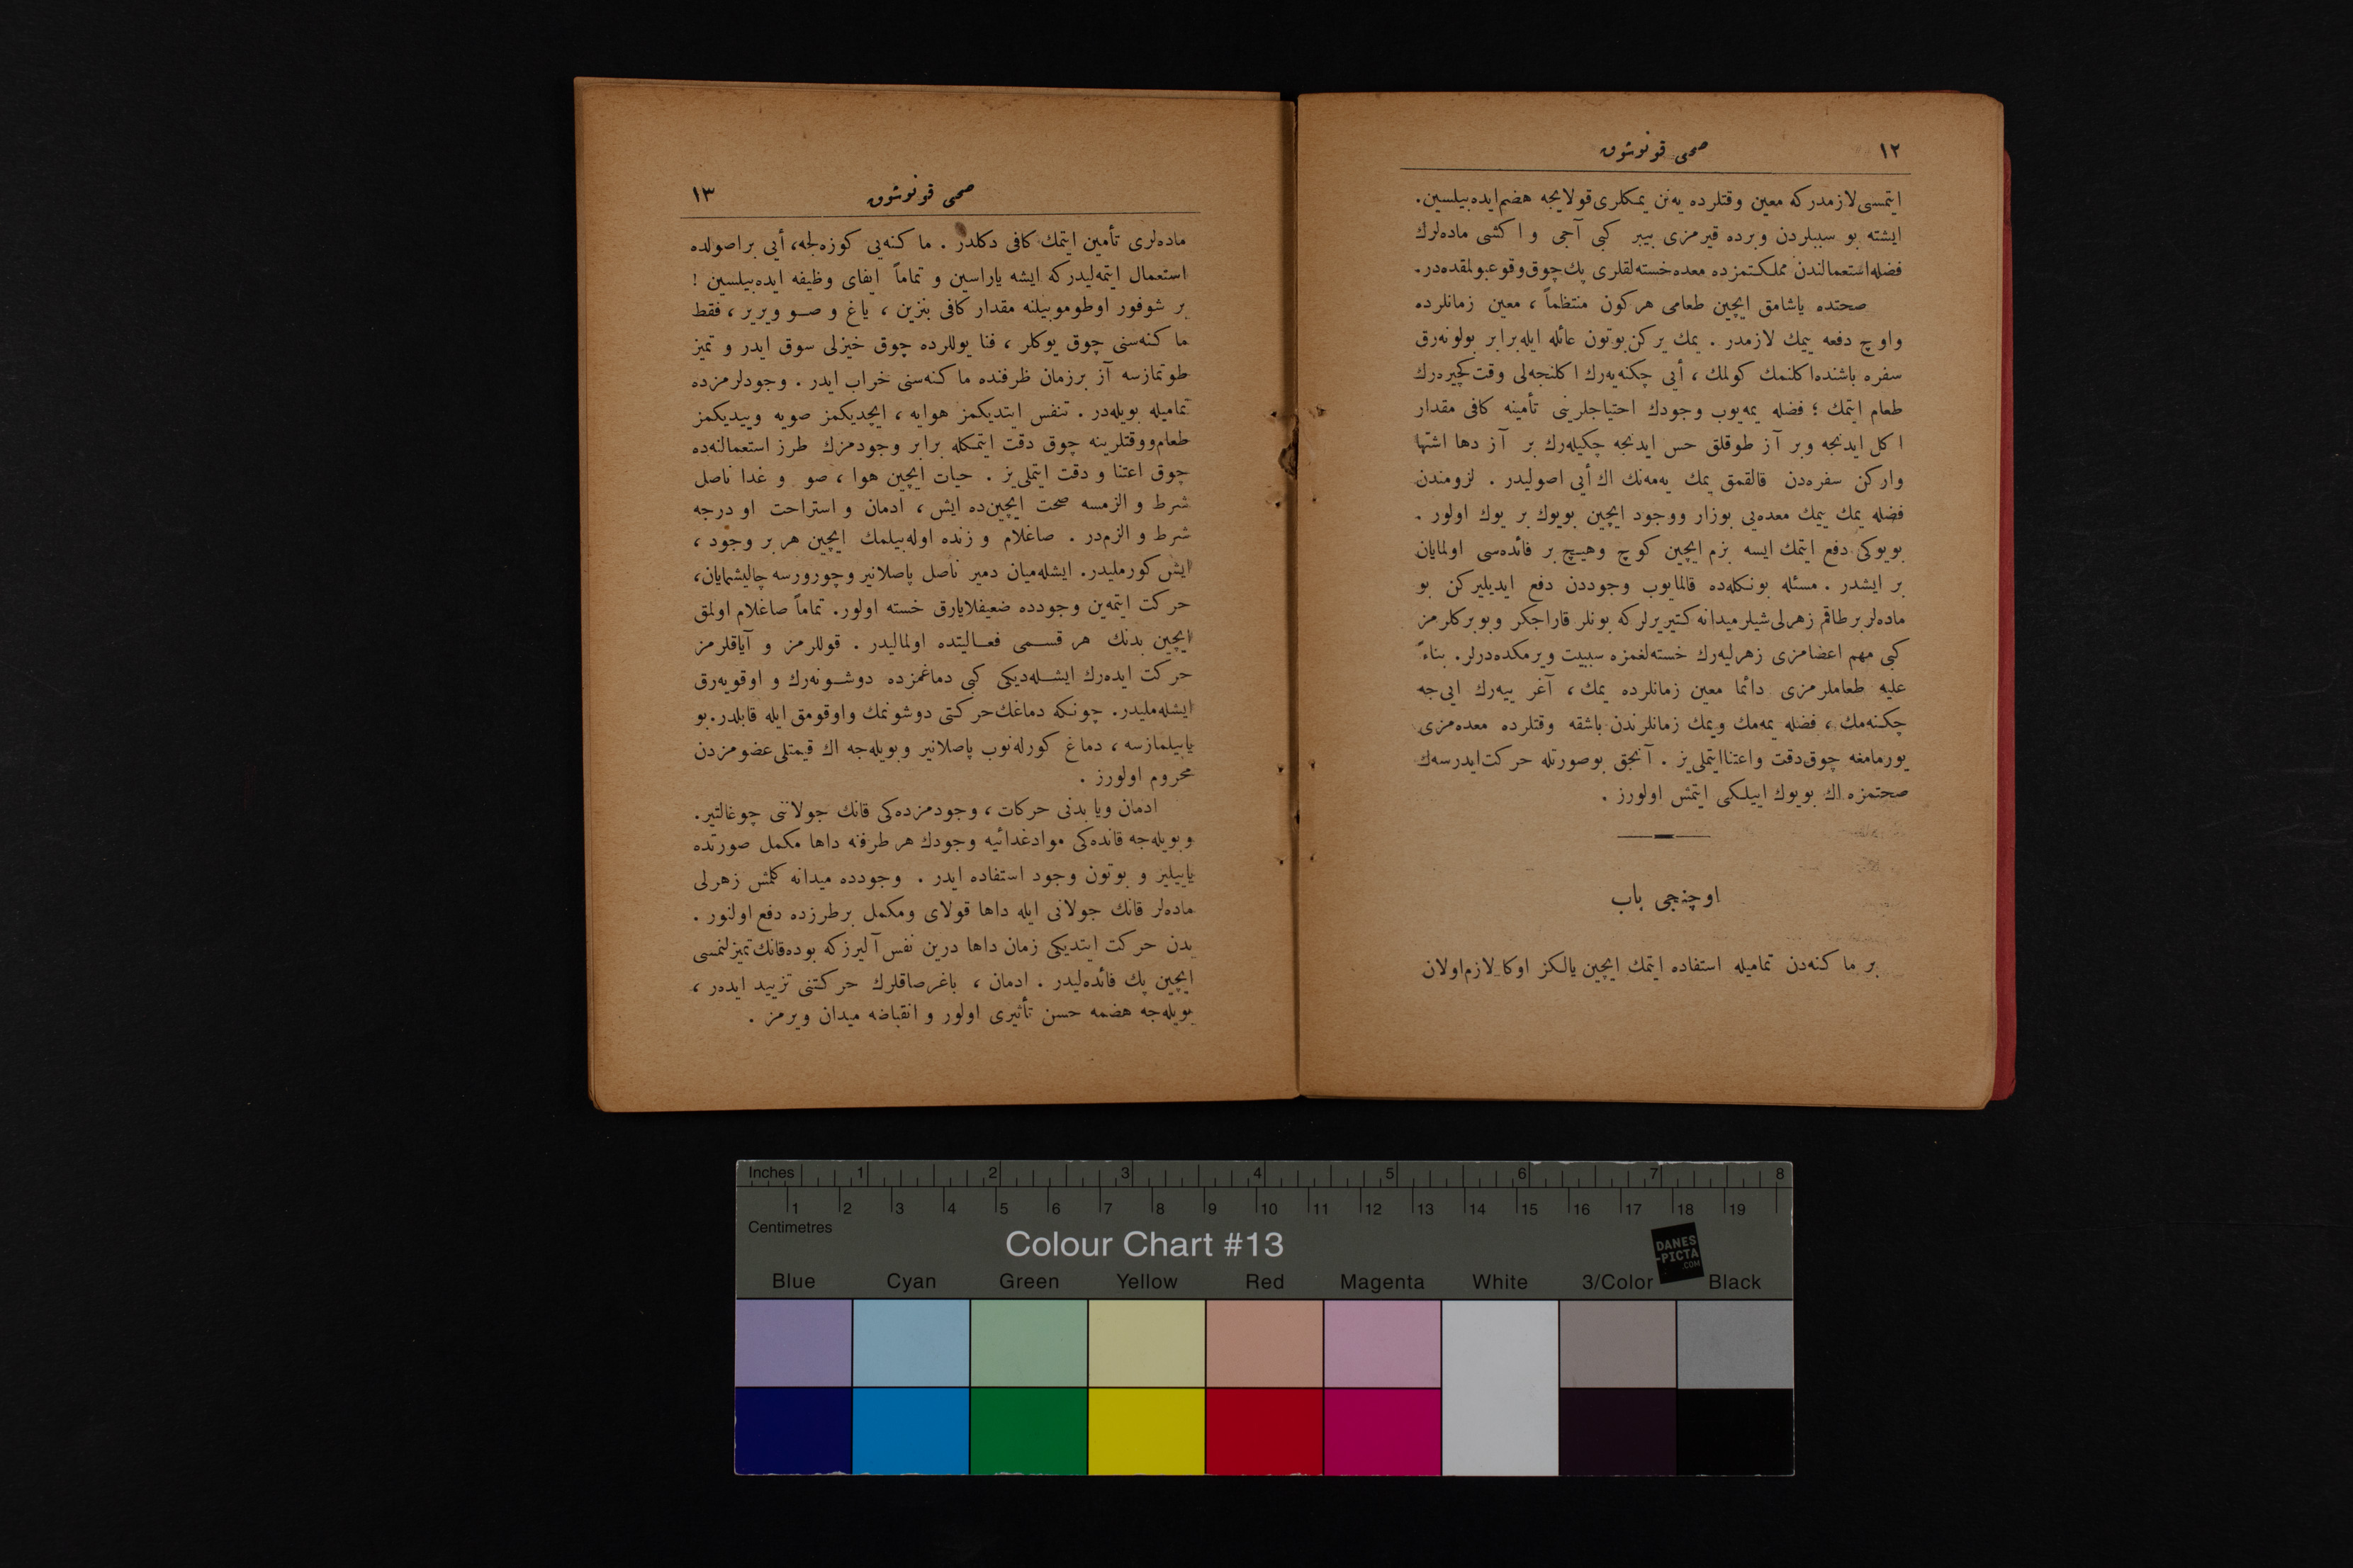 ١٢
صحی قونوشوق
ایتمسی لازمدرکه معین وقتلرده یه‌نن یمکلری قولایجه هضم ایده‌بیلسین.
ایشته بو سببلردن وبرده قیرمزی بیبر کبی آجی و اکشی ماده‌لرك
فضله استعمالندن مملکتمزده معده خسته‌لقلری پك چوق وقوعبولمقده‌در.
صحتده یاشامق ایچین طعامی هرکون منتظماً ، معین زمانلرده
واوچ دفعه ییمك لازمدر . یمك یرکن بوتون عائله ایله برابر بولونه‌رق
سفره باشنده اکلنمك کولمك ، أیی چکنه‌یه‌رك اکلنجه‌لی وقت کچیره‌رك
طعام ایتمك ؛ فضله یمه‌یوب وجودك احتیاجلرینی تأمینه کافی مقدار
اکل ایدنجه وبر آز طوقلق حس ایدنجه چکیله‌رك بر آز دها اشتها
وارکن سفره‌دن قالقمق یمك یه‌مه‌نك اك أیی اصولیدر . لزومندن
فضله یمك ییمك معده‌یی بوزار ووجود ایچین بویوك بر یوك اولور .
بویوکی دفع ایتمك ایسه بزم ایچین کوچ وهیچ بر فائده‌سی اولمایان
بر ایشدر . مسئله بونکله‌ده قالمایوب وجوددن دفع ایدیلیرکن بو
ماده‌لر بر طاقم زهرلی شیلر میدانه کتیریرلرکه بونلر قاراجکر وبوبرکلرمز
کبی مهم اعضامزی زهرلیه‌رك خسته‌لغمزه سببیت ویرمکده‌درلر. بناءً
علیه طعاملرمزی دائما معین زمانلرده یمك ، آغر ییه‌رك ایی‌جه
چکنه‌مك ، فضله یمه‌مك ویمك زمانلرندن باشقه وقتلرده معده‌مزی
یورمامغه چوق دقت واعتنا ایتملی‌یز . آنجق بوصورتله حرکت ایدرسه‌ك
صحتمزه اك بویوك اییلکی ایتمش اولورز .
اوچنجی باب
بر ماکنه‌دن تمامیله استفاده ایتمك ایچین یالکز اوکا لازم اولان
صحی قونوشوق
١٣
ماده‌لری تأمین ایتمك کافی دکلدر . ماکنه‌یی کوزه‌لجه، أیی بر اصولده
استعمال ایتمه‌لیدرکه ایشه یاراسین و تماماً ایفای وظیفه ایده‌بیلسین !
بر شوفور اوطوموبیلنه مقدار کافی بنزین ، یاغ و صو ویریر ، فقط
ماکنه‌سنی چوق یوکلر ، فنا یوللرده چوق خیزلی سوق ایدر و تمیز
طوتمازسه آز برزمان ظرفنده ماکنه‌سنی خراب ایدر . وجودلرمزده
تمامیله بویله‌در . تنفس ایتدیکمز هوایه ، ایچدیکمز صویه وییدیکمز
طعام‌ووقتلرینه چوق دقت ایتمکله برابر وجودمزك طرز استعمالنه‌ده
چوق اعتنا و دقت ایتملی‌یز . حیات ایچین هوا ، صو و غدا ناصل
شرط و الزمسه صحت ایچین‌ده ایش ، ادمان و استراحت او درجه
شرط و الزم‌در . صاغلام و زنده اوله‌بیلمك ایچین هر بر وجود ،
ایش کورملیدر. ایشله‌میان دمیر ناصل پاصلانیر وچورورسه چالیشمایان،
حرکت ایتمه‌ین وجودده ضعیفلایارق خسته اولور. تماماً صاغلام اولمق
ایچین بدنك هر قسمی فعالیتده اولمالیدر . قوللرمز و آیاقلرمز
حرکت ایده‌رك ایشله‌دیکی کبی دماغمزده دوشونه‌رك و اوقویه‌رق
ایشله‌ملیدر. چونکه دماغك حرکتی دوشونمك واوقومق ایله قابلدر. بو
یاپیلمازسه ، دماغ کورله‌نوب پاصلانیر وبویله‌جه اك قیمتلی عضومزدن
محروم اولورز .
ادمان ویا بدنی حرکات ، وجودمزده‌کی قانك جولاننی چوغالتیر.
وبویله‌جه قانده‌کی موادغدائیه وجودك هر طرفنه داها مکمل صورتده
یاپیلیر و بوتون وجود استفاده ایدر . وجودده میدانه کلمش زهرلی
ماده‌لر قانك جولانی ایله داها قولای ومکمل برطرزده دفع اولنور .
بدن حرکت ایتدیکی زمان داها درین نفس آلیرزکه بوده قانك تمیزلنمسی
ایچین پك فائده‌لیدر . ادمان ، باغرصاقلرك حرکتنی تزیید ایده‌ر ،
بویله‌جه هضمه حسن تأثیری اولور و انقباضه میدان ویرمز .
Inches 1 2 3 4 5 6 7 8
1 2 3 4 5 6 7 8 9 10 11 12 13 14 15 16 17 18 19
Centimetres
Colour Chart #13
DANES
-PICTA
.COM
Blue Cyan Green Yellow Red Magenta White 3/Color Black